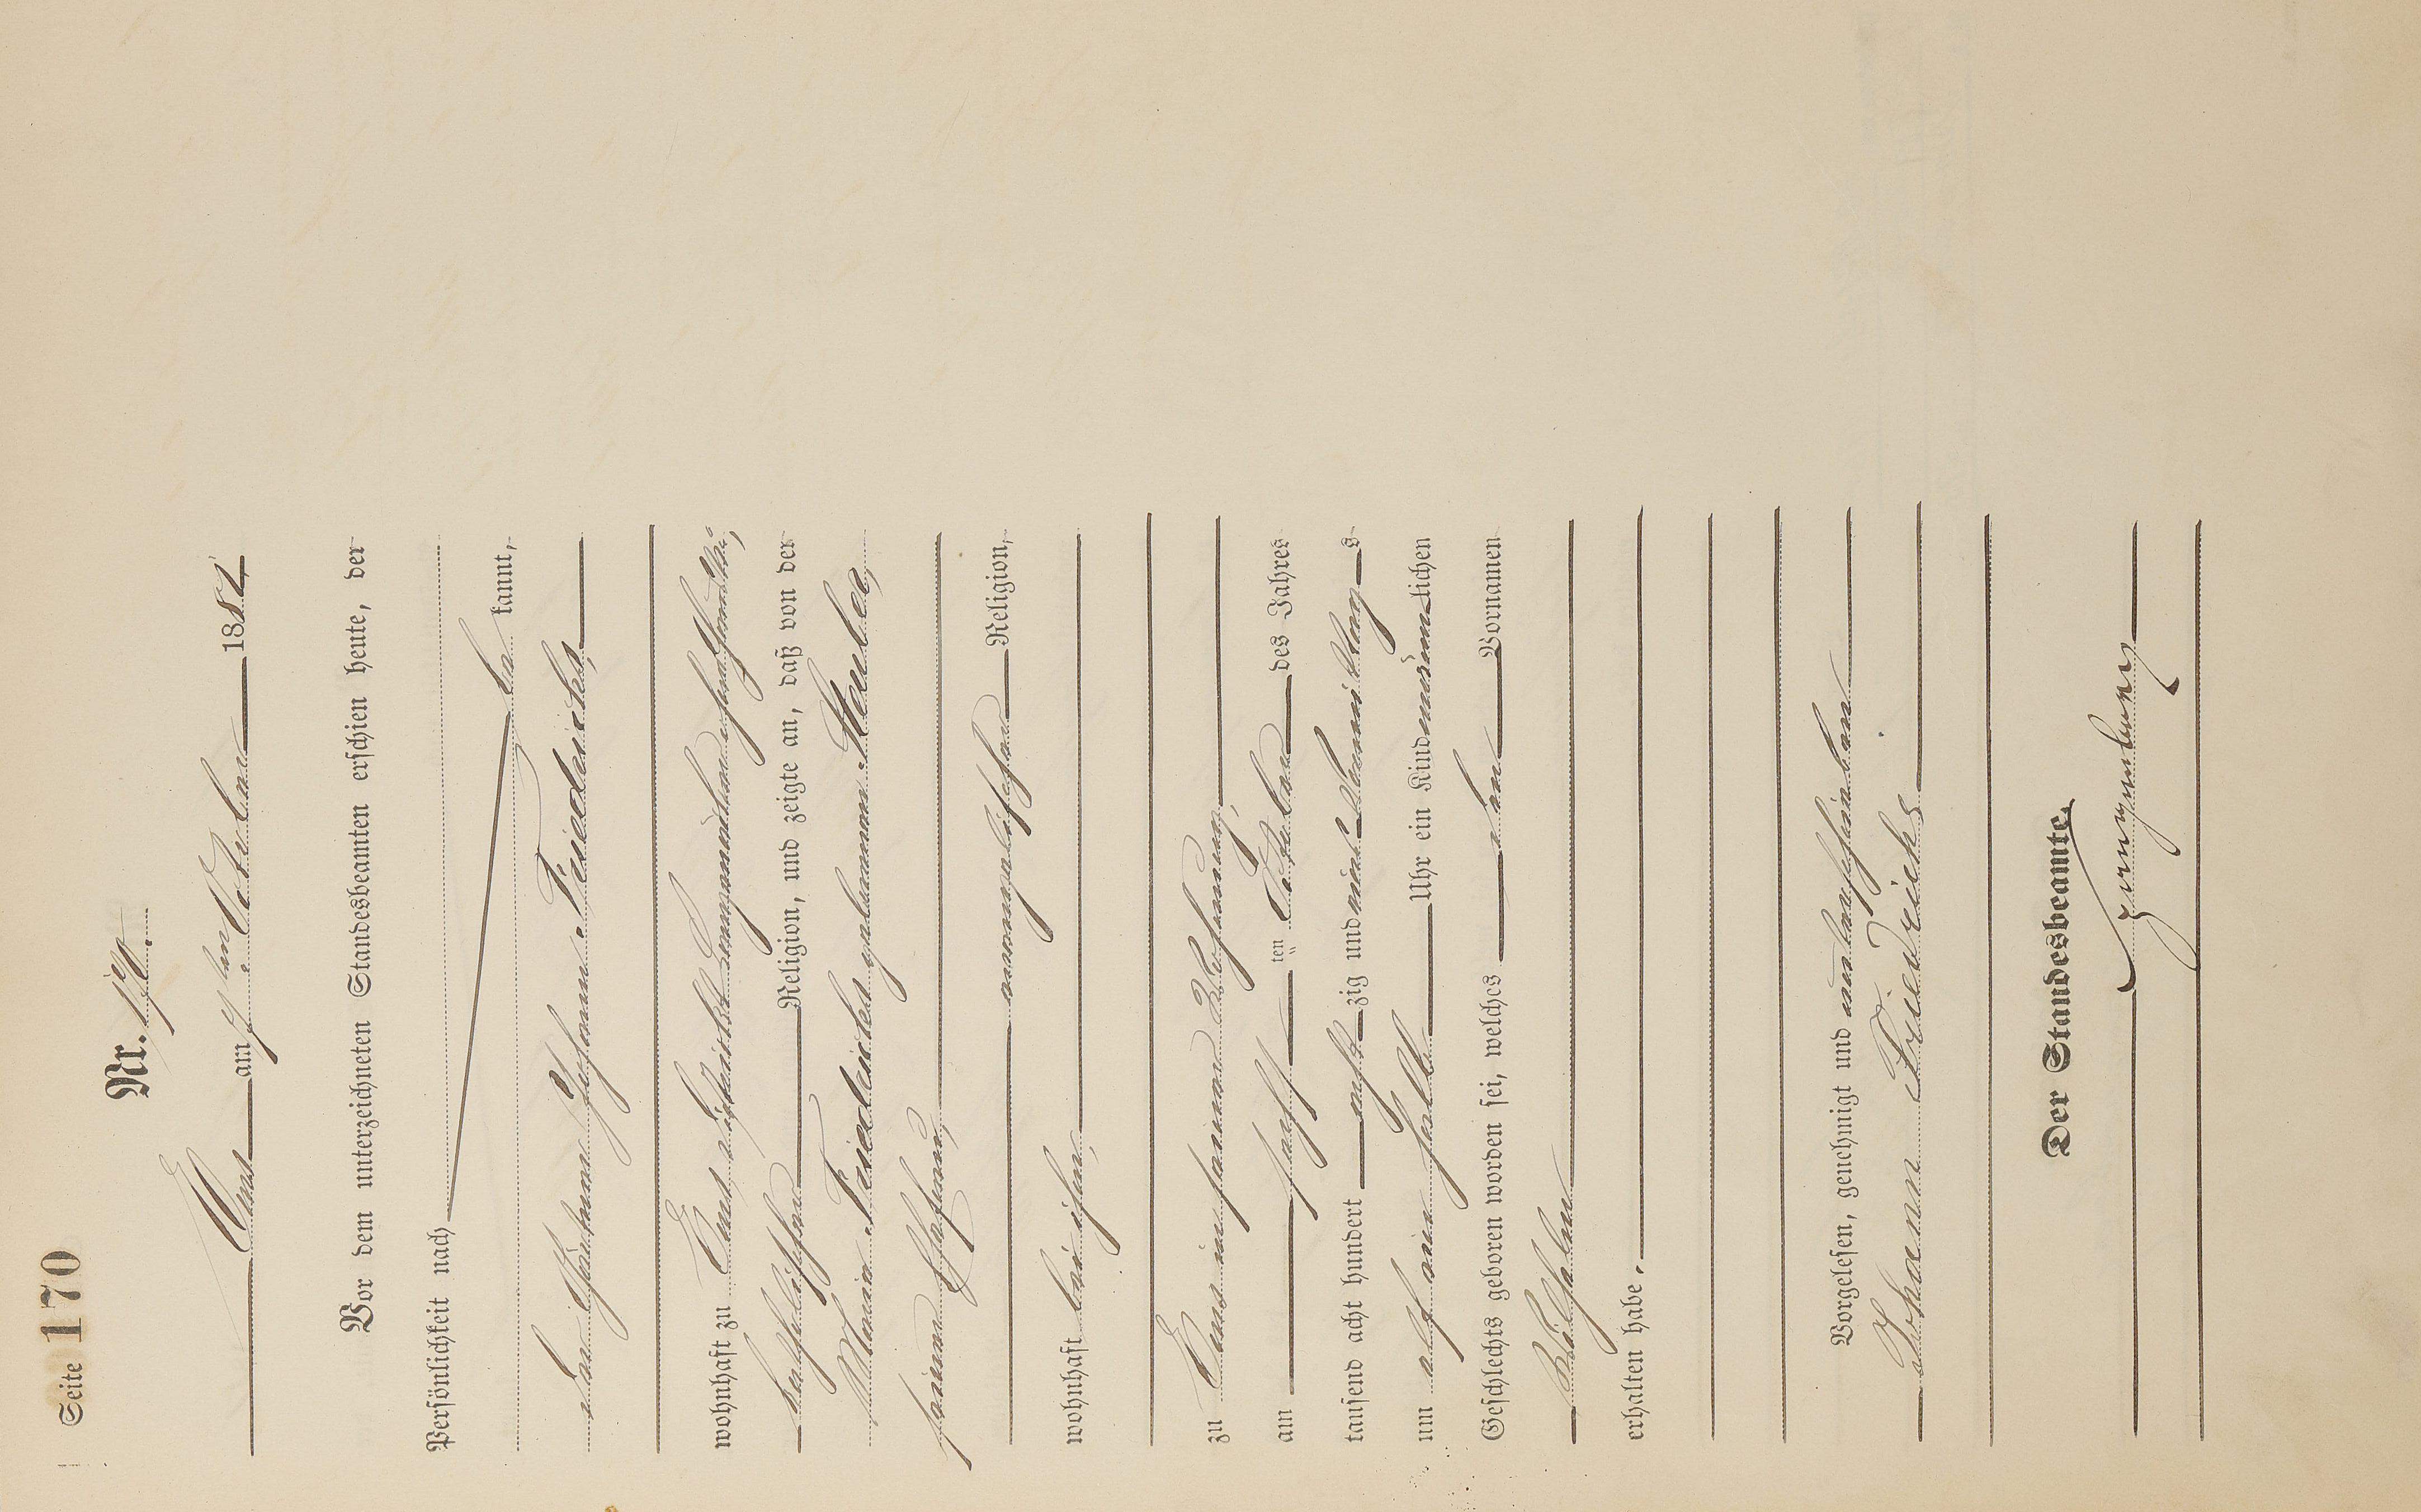 Seite 170
Nr. 170.
Ems am 7ten October 1882
Vor dem unterzeichneten Standesbeamten erschien heute, der
Persönlichkeit nach
be kannt,
der Johann Friedrichs,
wohnhaft zu Ems
katholischer Religion, und zeigte an, daß von der
Maria Friedrichs geborenen
seiner Ehefrau,
evangelischer Religion,
wohnhaft bei ihm,
zu Ems in seiner Wohnung,
am ten October des Jahres
tausend acht hundert acht zig und zwei Vormittags
um elf ein halb Uhr ein Kind männlichen
Geschlechts geboren worden sei, welches den Vornamen
Wilhelm
erhalten habe.
Vorgelesen, genehmigt und unterschrieben
Johann Friedrichs
Der Standesbeamte.